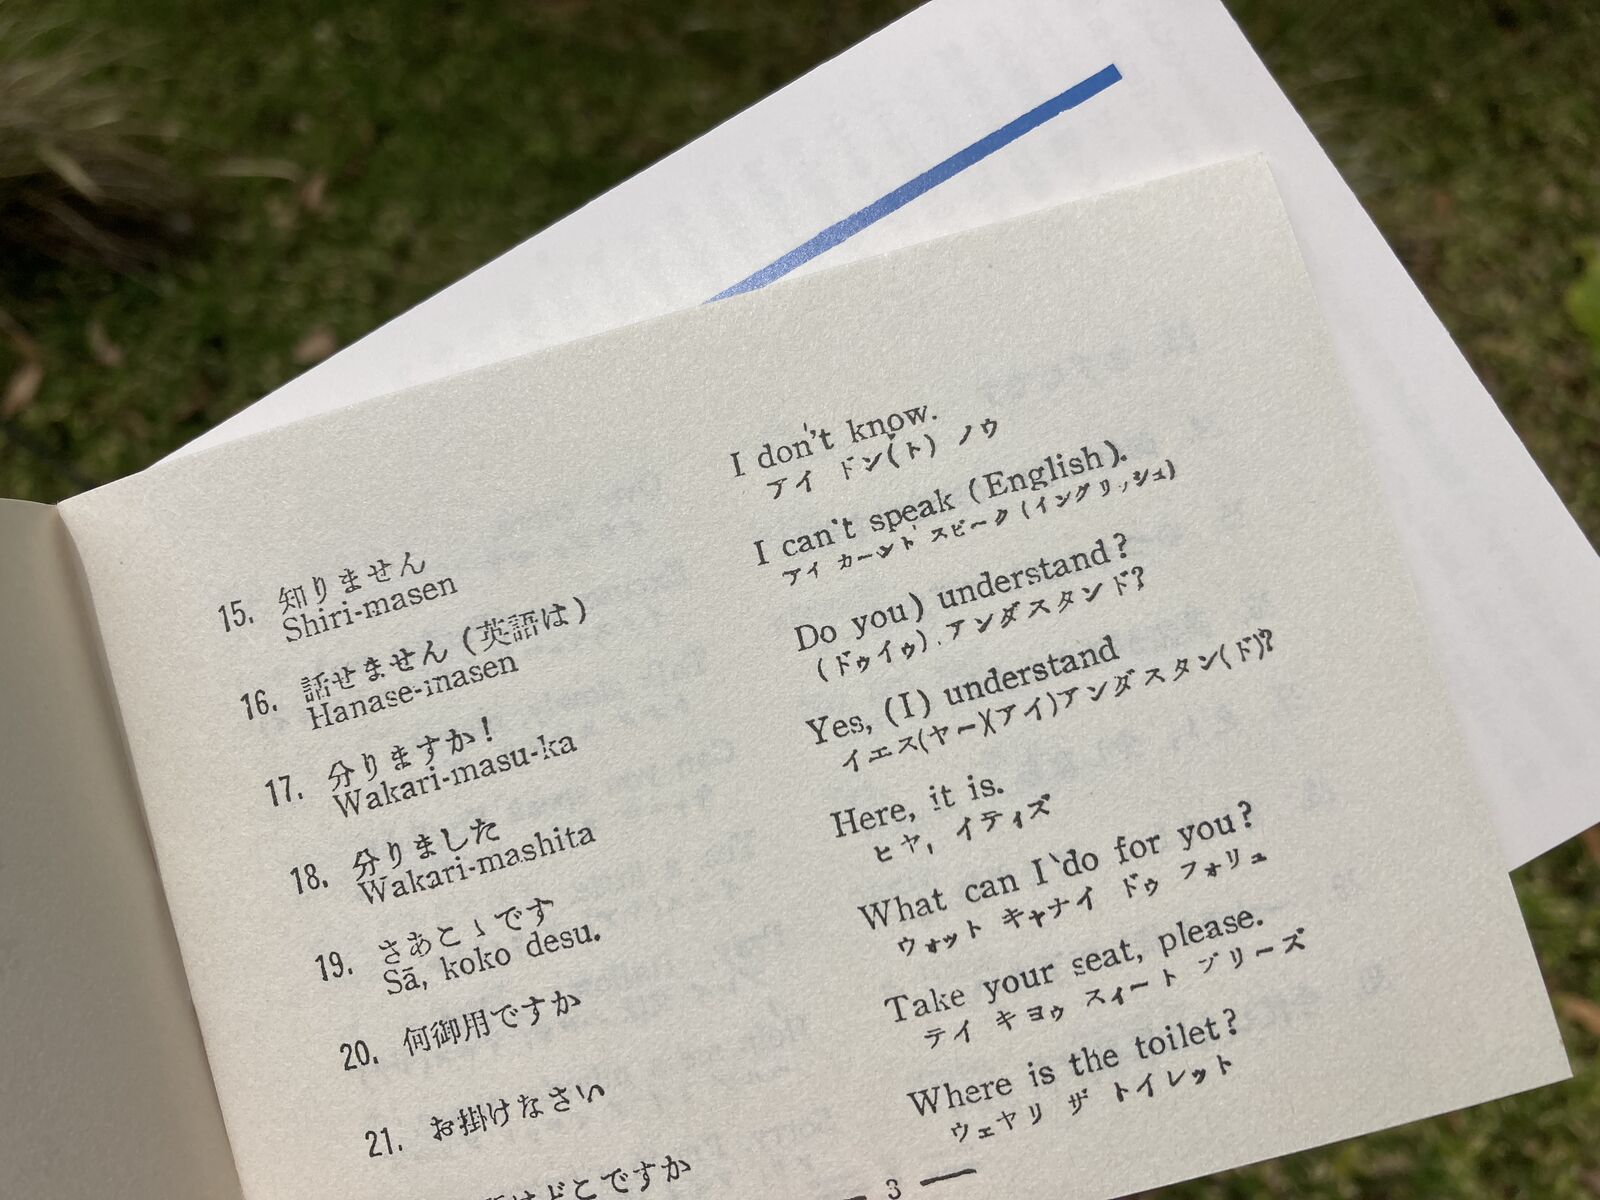 15. 知りません
Shiri-masen
I don't know.
アイ ドン(ト) ノウ
16. 話せません(英語は)
Hanase-masen
I can't speak (English).
アイ カーント スピーク(イングリッシュ)
17. 分りますか!
Wakari-masu-ka
Do you) understand?
(ドゥイゥ).アンダスタンド?
18. 分りました
Wakari-mashita
Yes, (I) understand
イエス(ヤー)(アイ)アンダスタン(ド)?
19. さあこゝです
Sā, koko desu.
Here, it is.
ヒヤ, イティズ
20. 何御用ですか
What can I do for you?
ウォット キャナイ ドゥ フォリュ
21. お掛けなさい
Take your seat, please.
テイ キヨゥ スィート プリーズ
はどこですか
Where is the toilet?
ウェヤリ ザ トイレット
— 3 —